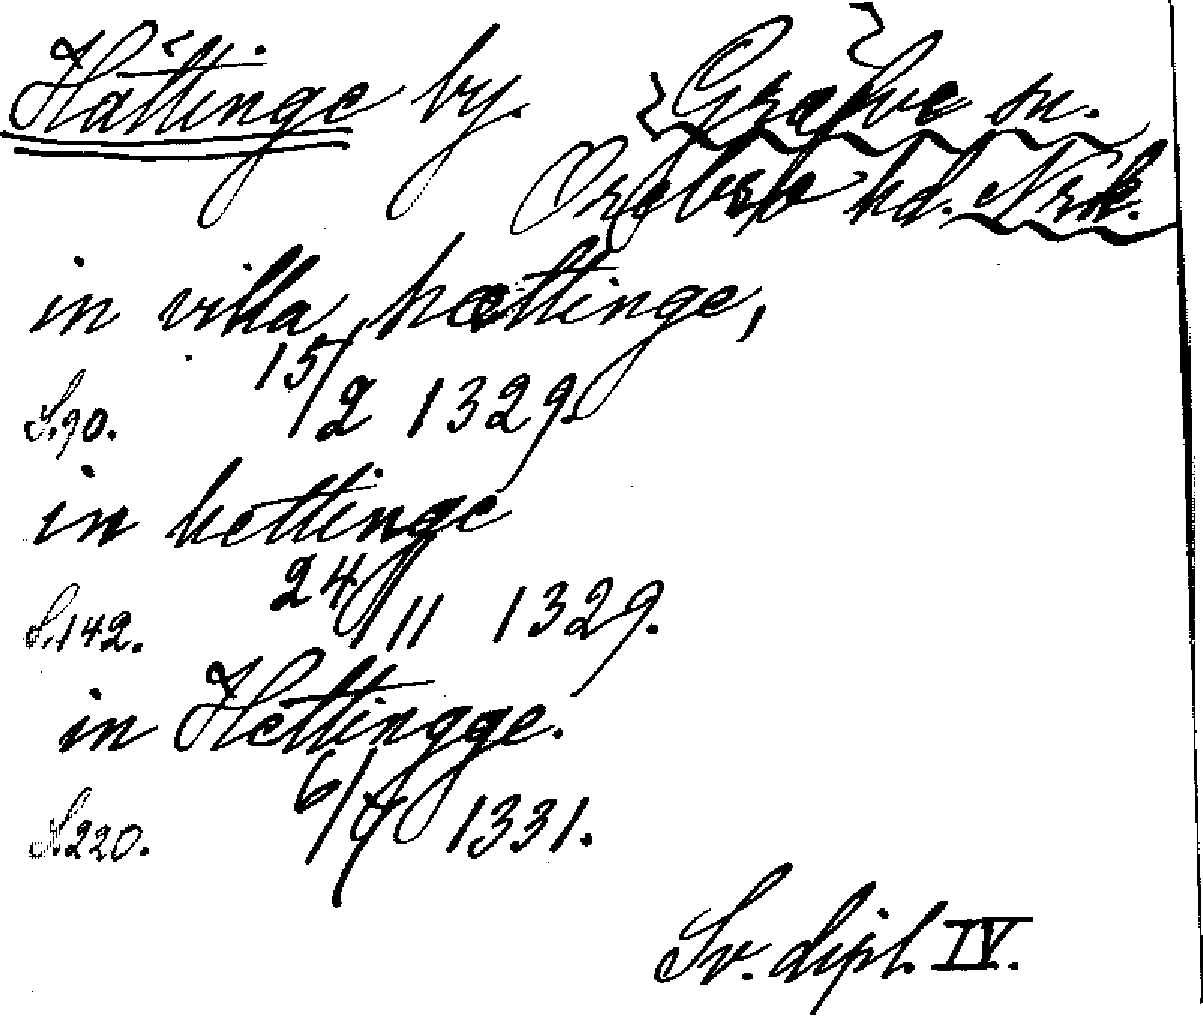 Hättinge by. Gräve sn.
Örebro hd. Nrk.
in villa hættinge,
S. 90. 15/2 1329.
in hettinge
S. 142. 24/11 1329.
in Hettingge.
S. 220. 6/4 1331.
Sv. dipl. IV.